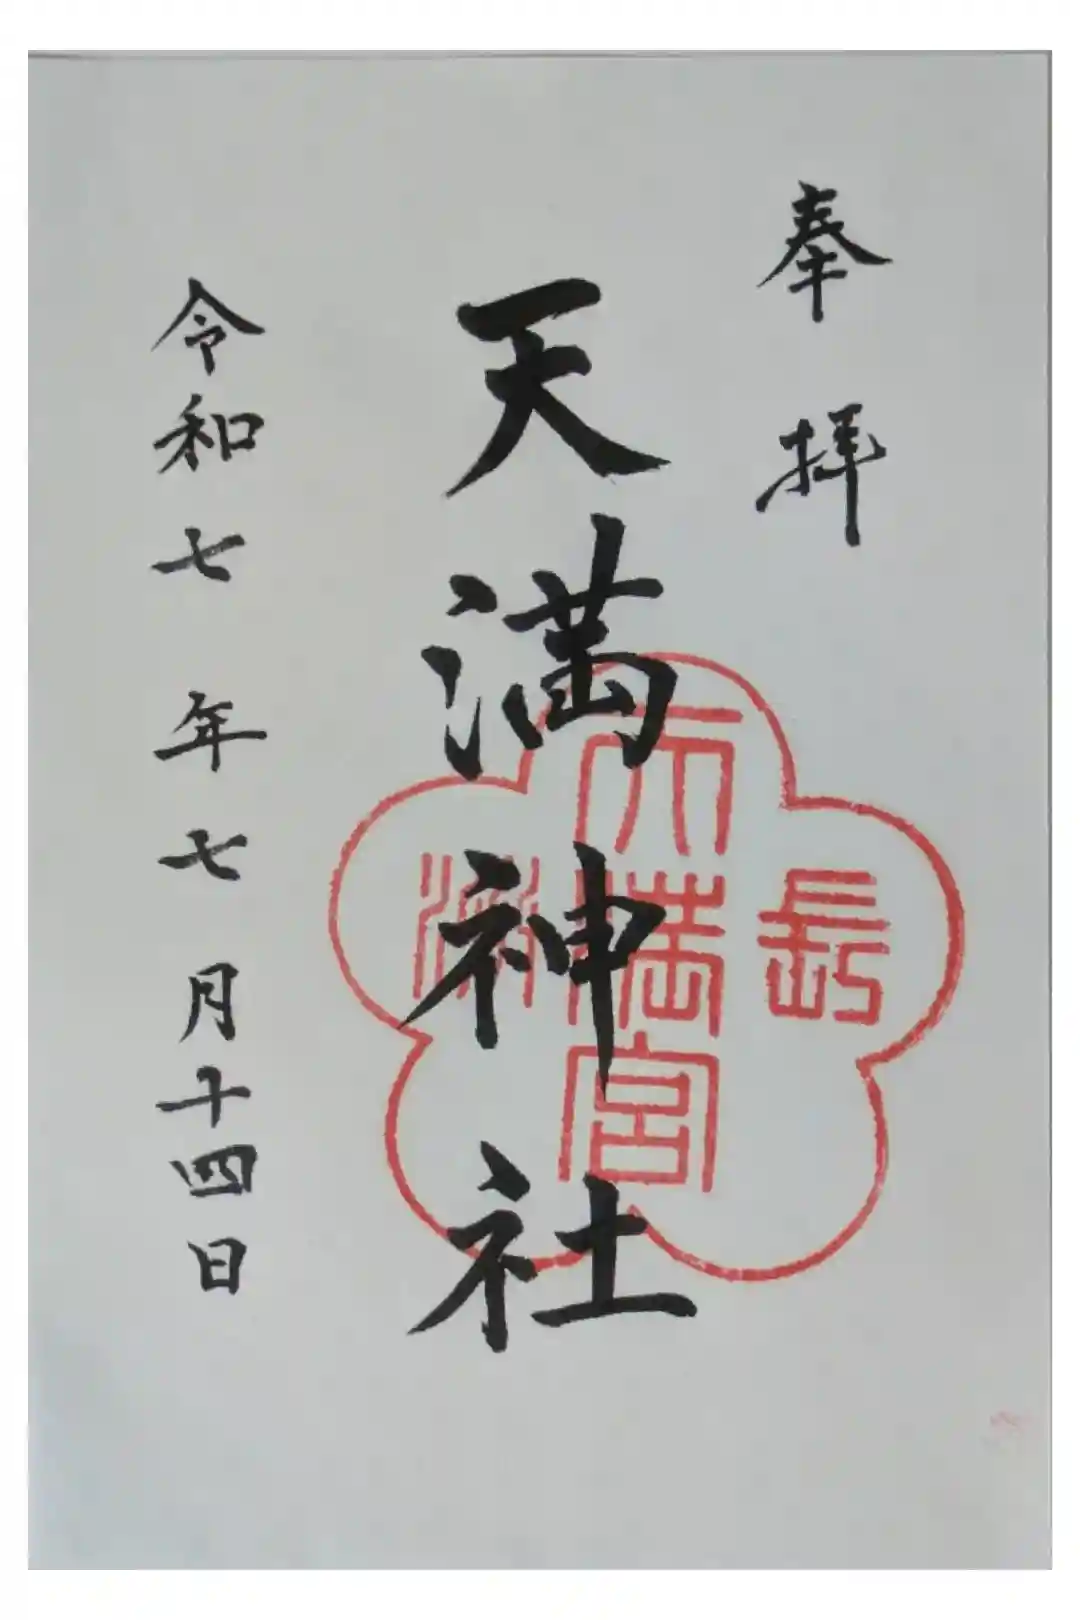 奉拝
天満神社
長
天満宮
令和七年七月十四日